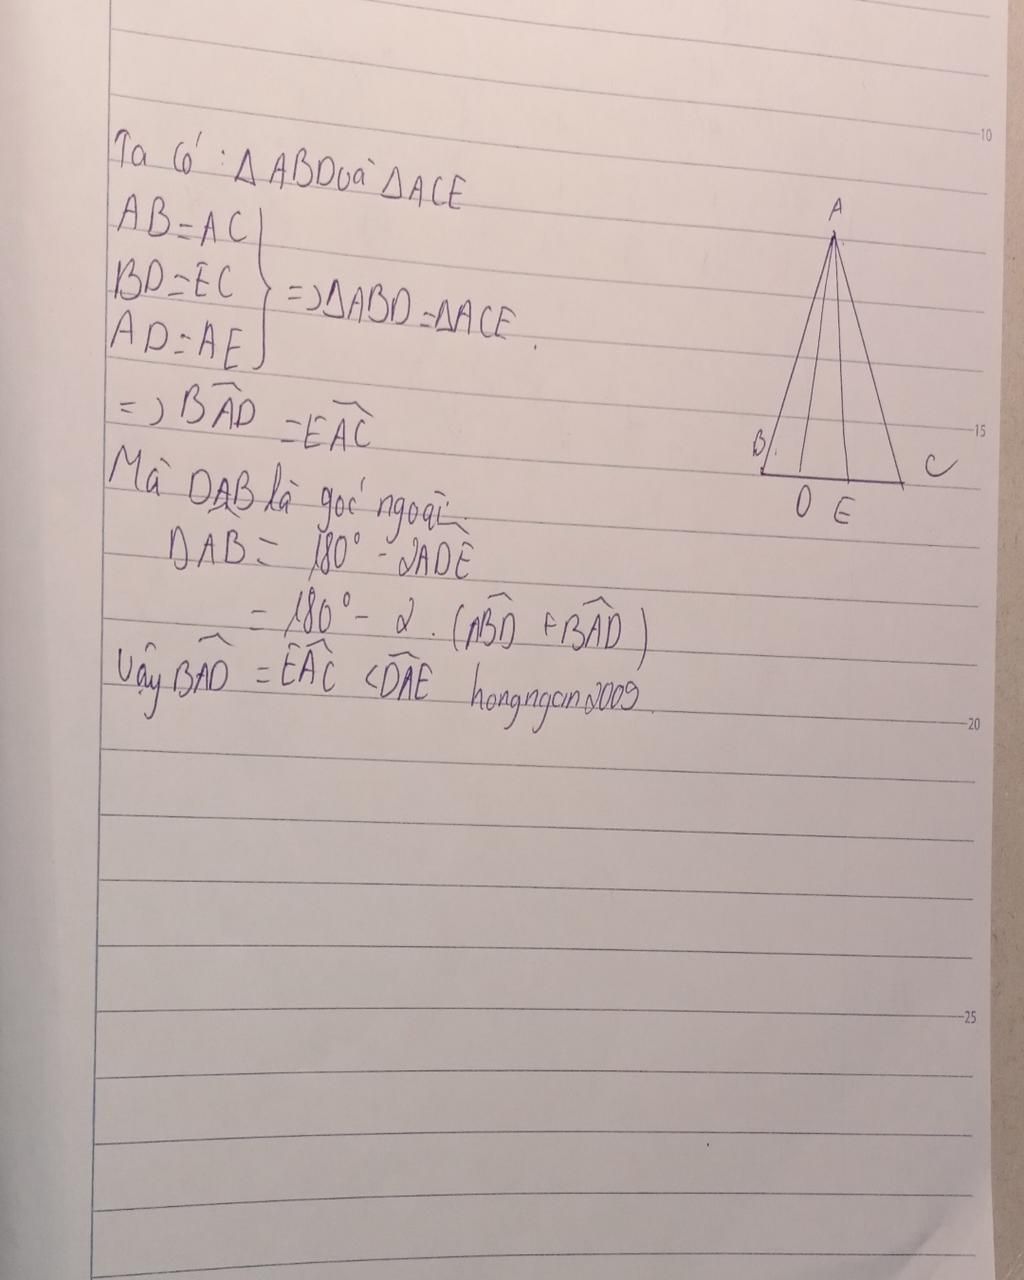 Ta có : Δ ABD và ΔACE
AB = AC
BD = EC
AD = AE
=> ΔABD = ΔACE.
=> BAD̂ = EAĈ
Mà DAB là góc ngoài
DAB = 180° - 2ADE
= 180° - 2. (ABD + BAD)
Vậy BAD = EAC < DAE hongngan2009.
A
B
D E
C
10
15
20
25